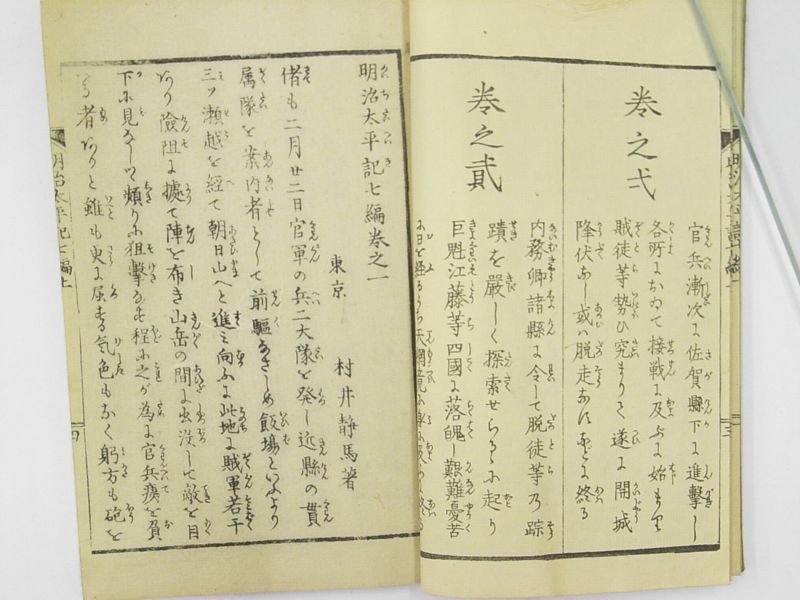 巻之弌
官兵漸次に佐賀縣下に進撃し
各所において接戦に及ぶに始まり
賊徒等勢ひ究まりて遂に開城
降伏なし或ハ脱走なすなどに終る
巻之貳
内務卿諸縣に令して脱徒等の踪
蹟を嚴しく探索せらるゝに起り
巨魁江藤等四國に落魄し艱難憂苦
明治太平記七編巻之一
東京 村井静馬著
偖も二月廿二日官軍の兵二大隊を發し近縣の貫
属隊を案内者として前驅なさしめ飯場といふより
三ツ瀬越を経て朝日山へと進み向ふに此地に賊軍若干
險阻に據て陣を布き山岳の間に出没して敵を目
下に見なしつゝ頻りに狙撃なす程に之が為に官兵瘼を負
者ありと雖も更に屈する気色もなく躬方も砲を
明治太平記七編上